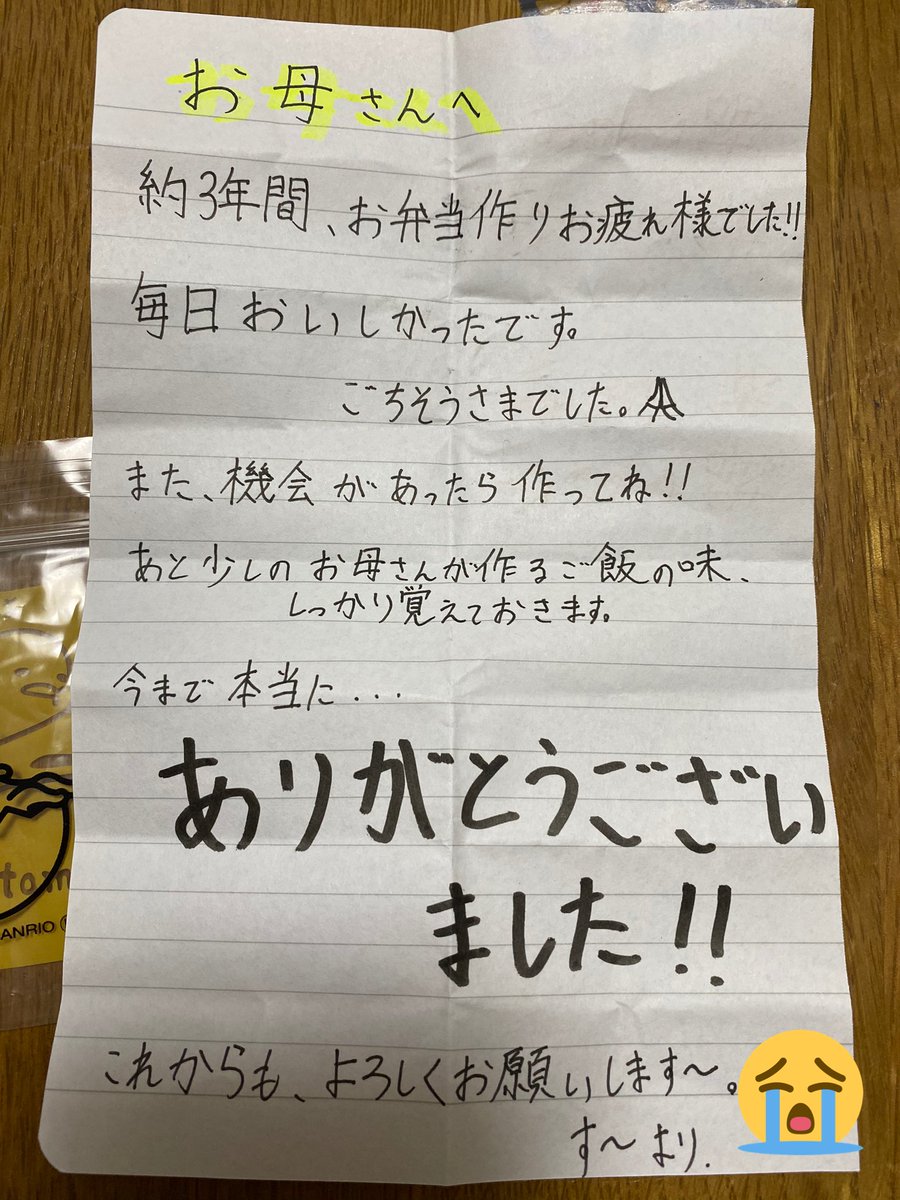 お母さんへ
約3年間、お弁当作りお疲れ様でした!!
毎日おいしかったです。
ごちそうさまでした。
また、機会があったら作ってね!!
あと少しのお母さんが作るご飯の味、
しっかり覚えておきます。
今まで本当に...
ありがとうござい
ました!!
これからも、よろしくお願いします〜。
す〜より.
tom
ANRIO